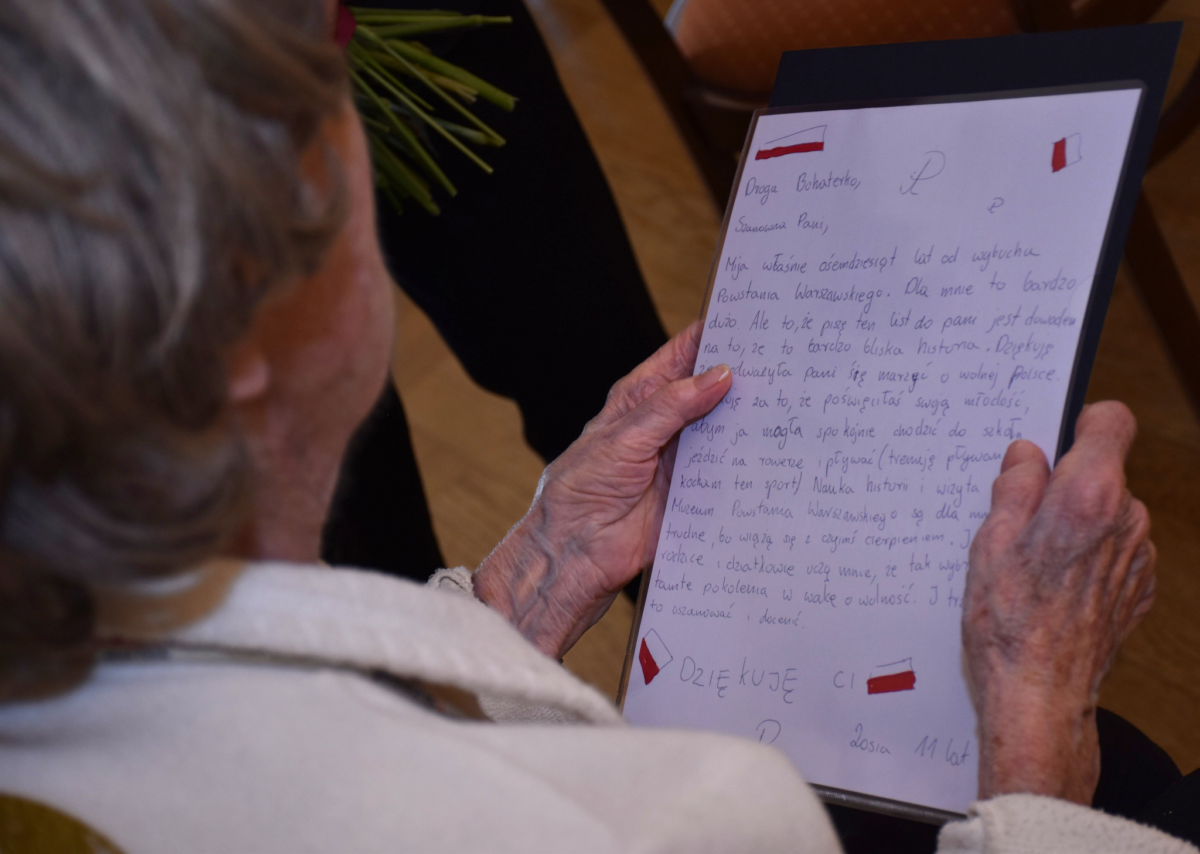 Droga Bohaterko,
Szanowna Pani,
Mija właśnie osiemdziesiąt lat od wybuchu
Powstania Warszawskiego. Dla mnie to bardzo
dużo. Ale to, że piszę ten list do pani jest dowodem
na to, że to bardzo bliska historia. Dziękuję
odważyła pani się marzyć o wolnej Polsce.
za to, że poświęciłaś swoją młodość,
abym ja mogła spokojnie chodzić do szkoły
jeździć na rowerze i pływać (trenuję
kocham ten sport) Nauka historii i wizyta
Muzeum Powstania Warszawskiego są dla
trudne, bo wiążą się z czyimś cierpieniem. I
rodzice i dziadkowie uczą mnie, że tak
tamte pokolenia w walkę o wolność. I
to uszanować i docenić.
DZIĘKUJĘ CI
Zosia 11 lat